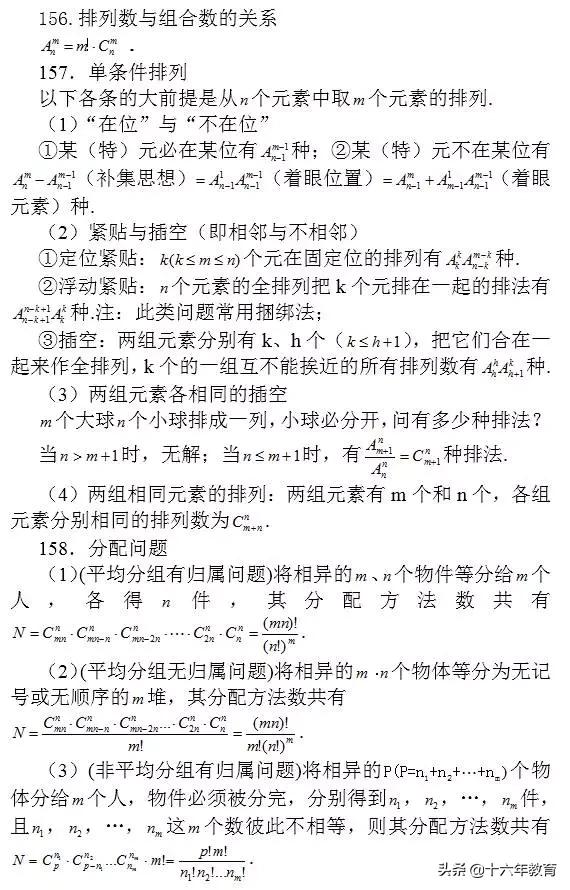 156.排列数与组合数的关系
$A_n^m = m! \cdot C_n^m$ .
157．单条件排列
以下各条的大前提是从$n$个元素中取$m$个元素的排列.
（1）“在位”与“不在位”
①某（特）元必在某位有$A_{n-1}^{m-1}$种；②某（特）元不在某位有
$A_n^m - A_{n-1}^{m-1}$（补集思想）$= A_{n-1}^1 A_{n-1}^{m-1}$（着眼位置）$= A_{n-1}^m + A_{m-1}^1 A_{n-1}^{m-1}$（着眼
元素）种.
（2）紧贴与插空（即相邻与不相邻）
①定位紧贴：$k(k \le m \le n)$个元在固定位的排列有$A_k^k A_{n-k}^{m-k}$种.
②浮动紧贴：$n$个元素的全排列把k个元排在一起的排法有
$A_{n-k+1}^{n-k+1} A_k^k$种.注：此类问题常用捆绑法；
③插空：两组元素分别有k、h个（$k \le h+1$），把它们合在一
起来作全排列，k个的一组互不能挨近的所有排列数有$A_h^h A_{h+1}^k$种.
（3）两组元素各相同的插空
$m$个大球$n$个小球排成一列，小球必分开，问有多少种排法？
当$n > m+1$时，无解；当$n \le m+1$时，有$\frac{A_{m+1}^n}{A_n^n} = C_{m+1}^n$种排法.
（4）两组相同元素的排列：两组元素有m个和n个，各组
元素分别相同的排列数为$C_{m+n}^n$.
158．分配问题
（1）(平均分组有归属问题)将相异的$m$、$n$个物件等分给$m$个
人，各得$n$件，其分配方法数共有
$N = C_{mn}^n \cdot C_{mn-n}^n \cdot C_{mn-2n}^n \cdots C_{2n}^n \cdot C_n^n = \frac{(mn)!}{(n!)^m}$.
（2）(平均分组无归属问题)将相异的$m \cdot n$个物体等分为无记
号或无顺序的$m$堆，其分配方法数共有
$N = \frac{C_{mn}^n \cdot C_{mn-n}^n \cdot C_{mn-2n}^n ... \cdot C_{2n}^n \cdot C_n^n}{m!} = \frac{(mn)!}{m!(n!)^m}$.
（3）(非平均分组有归属问题)将相异的$P(P=n_1+n_2+\cdots+n_m)$个物
体分给$m$个人，物件必须被分完，分别得到$n_1$，$n_2$，…，$n_m$件，
且$n_1$，$n_2$，…，$n_m$这$m$个数彼此不相等，则其分配方法数共有
$N = C_p^{n_1} \cdot C_{p-n_1}^{n_2} ... C_{n_m}^{n_m} \cdot m! = \frac{p!m!}{n_1!n_2!...n_m!}$.
头条 @十六年教育